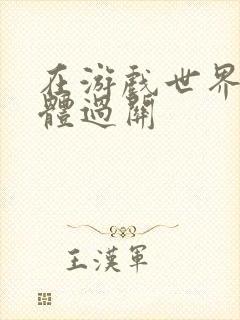 在游戲世界
體過關
王漢軍